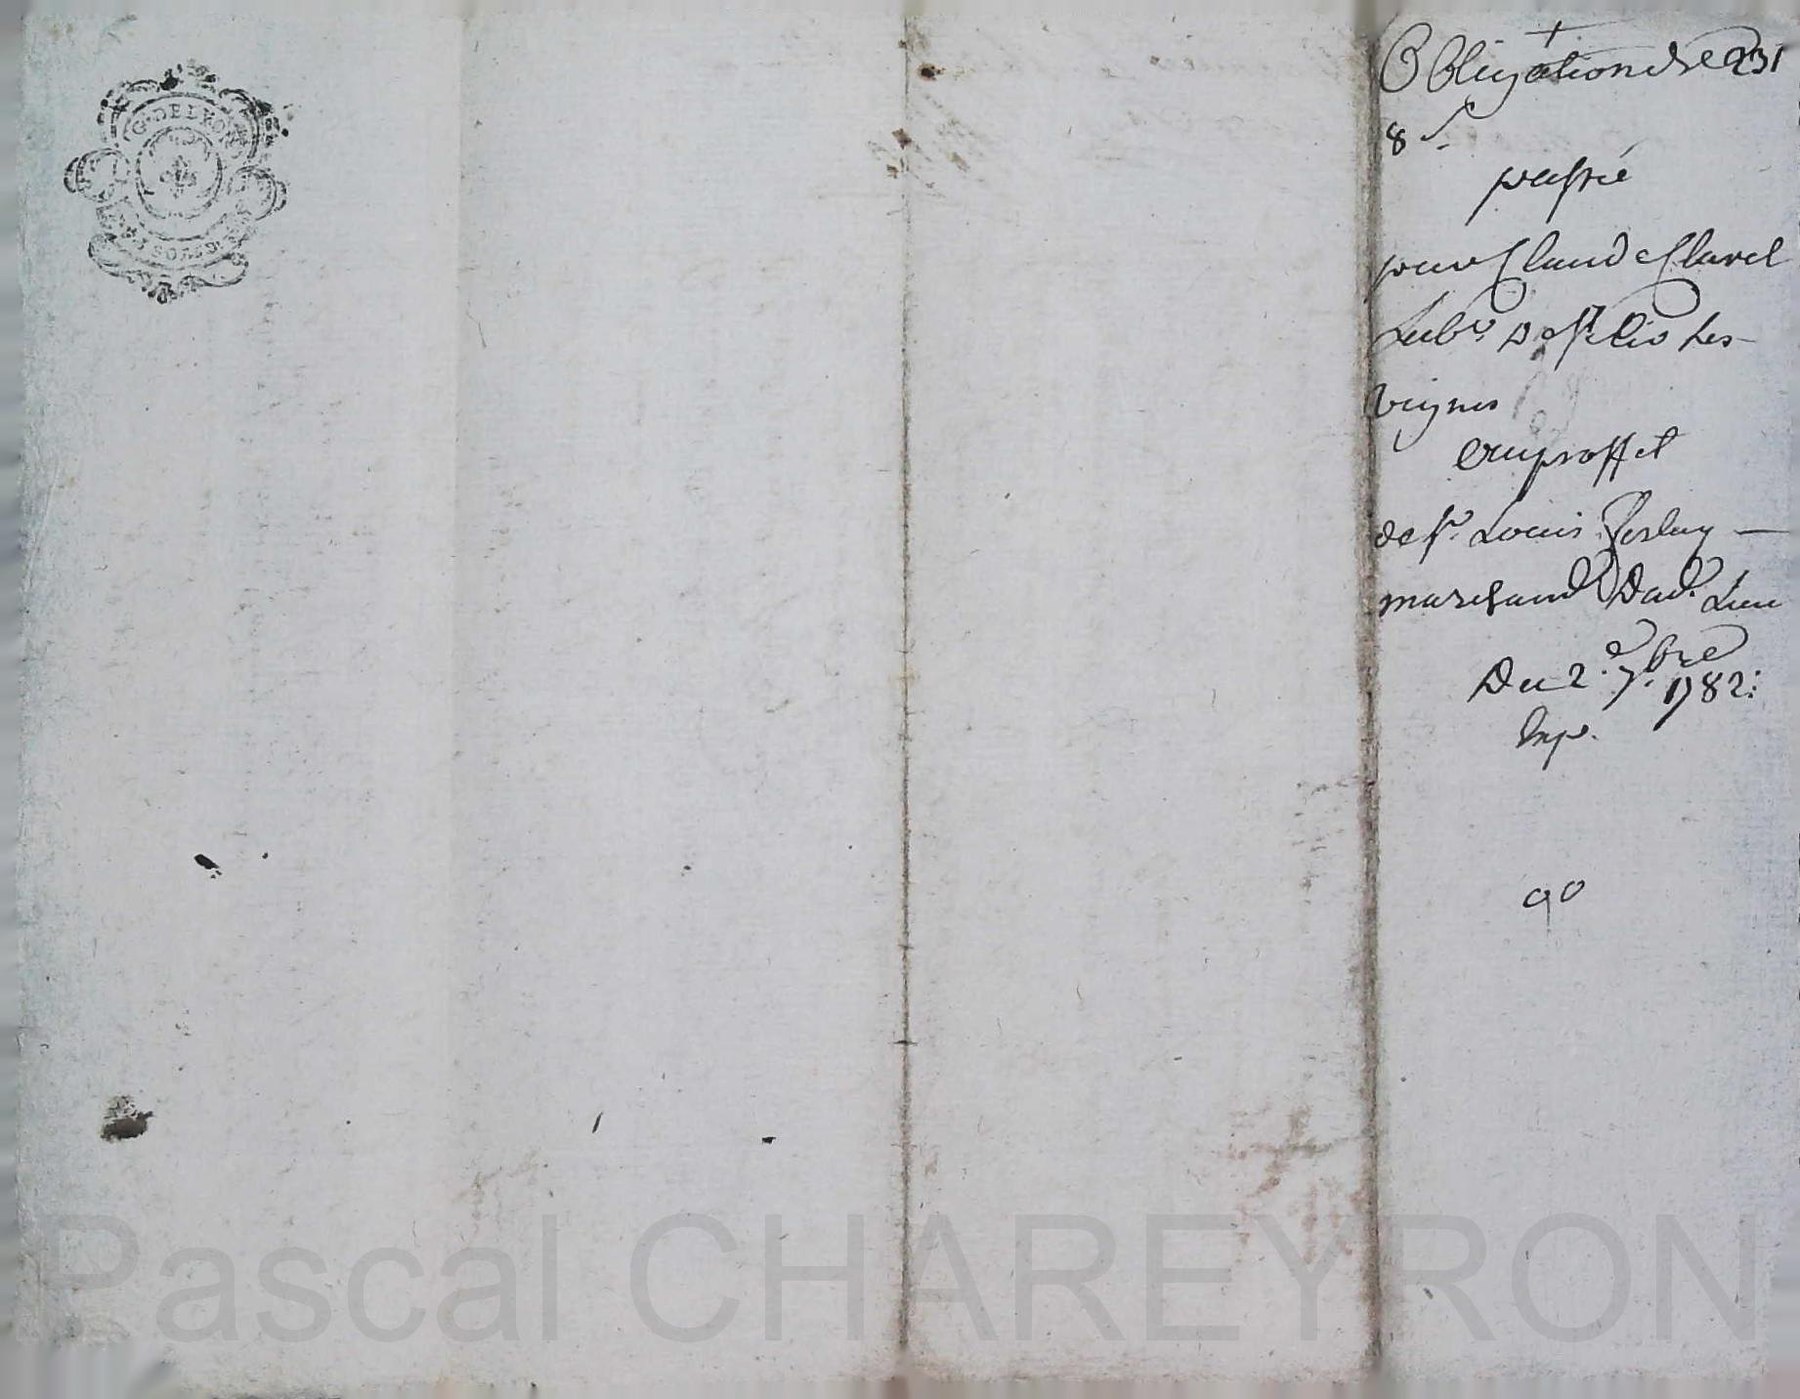 G. DE LYON
SOLS
+
Obligation de 231
8 s.
passée
par Claude Clavel
Lab.r de St. Cir les
vignes
au proffit
de sr. Louis Ferlay
marchand Dud. Lieu
Du 2.e 7.bre 1782:
Exp.
90
Pascal CHAREYRON